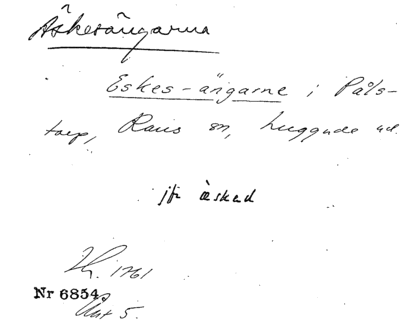 Äskesängarna
Eskes-ängarne i Påls-
torp, Raus sn, huggude ut.
jfr æsked
1761
Nr 6854
Akt 5.